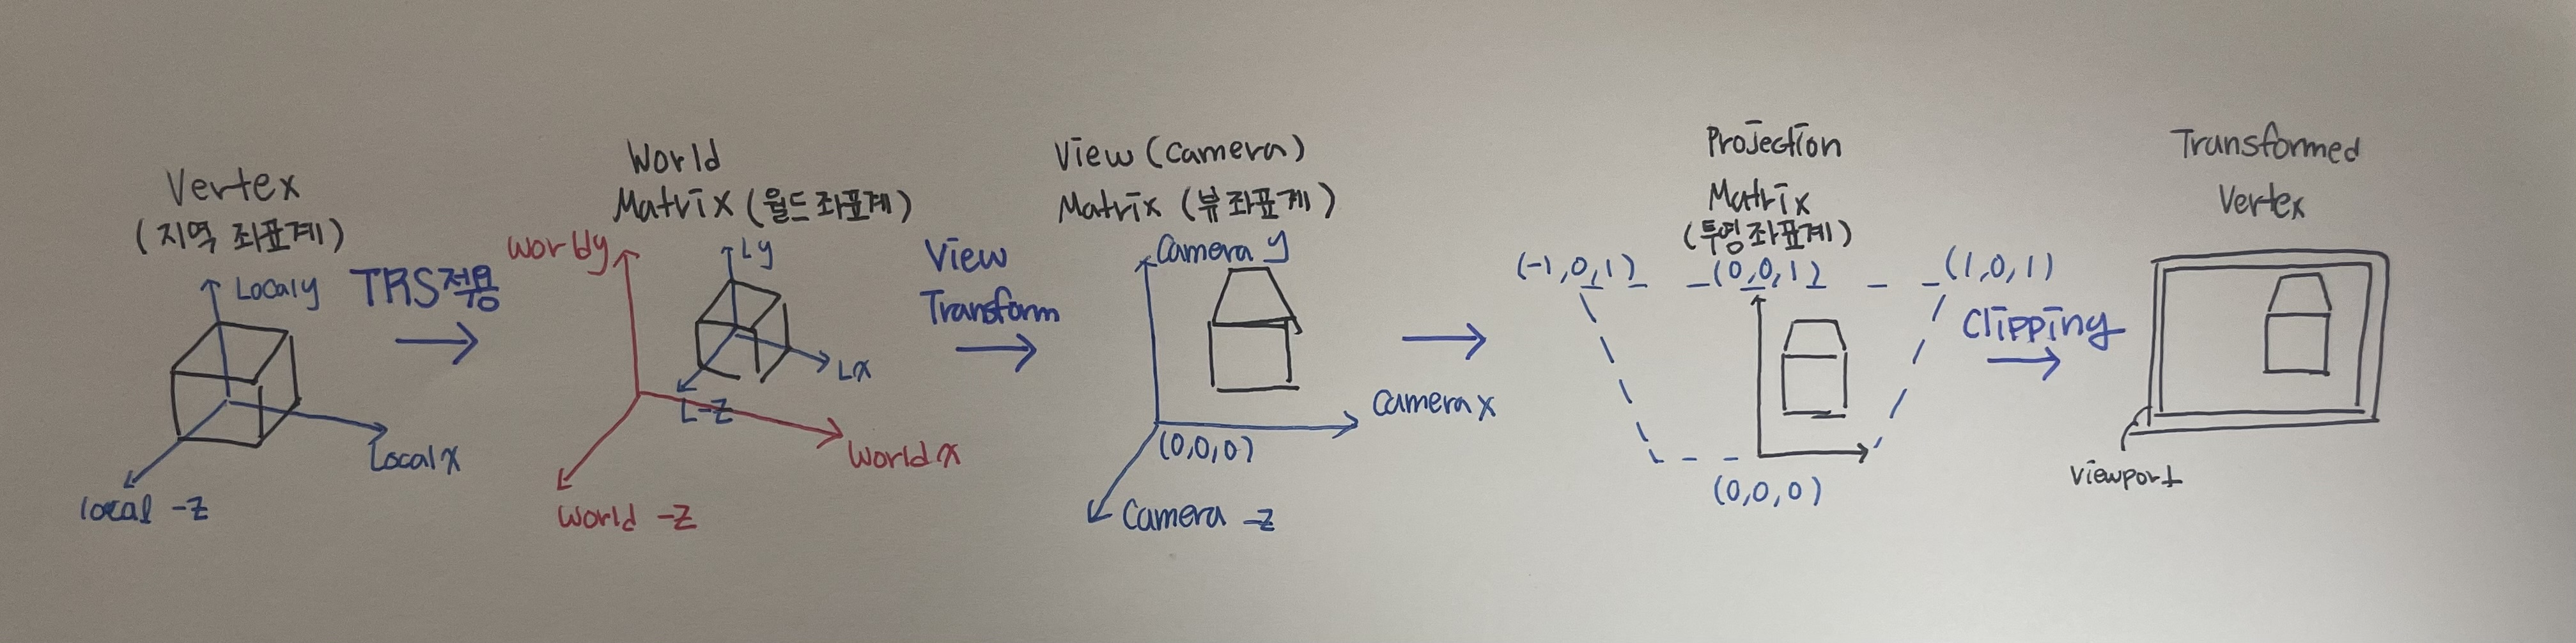 Vertex
(지역 좌표계)
Local y
Local x
local -z
TRS적용
World
Matrix (월드 좌표계)
World y
Ly
Lx
L-z
World x
World -z
View
Transform
View (Camera)
Matrix (뷰 좌표계)
Camera y
Camera x
(0,0,0)
Camera -z
Projection
Matrix
(투영 좌표계)
(-1,0,1)
(0,0,1)
(1,0,1)
(0,0,0)
Clipping
Transformed
Vertex
Viewport